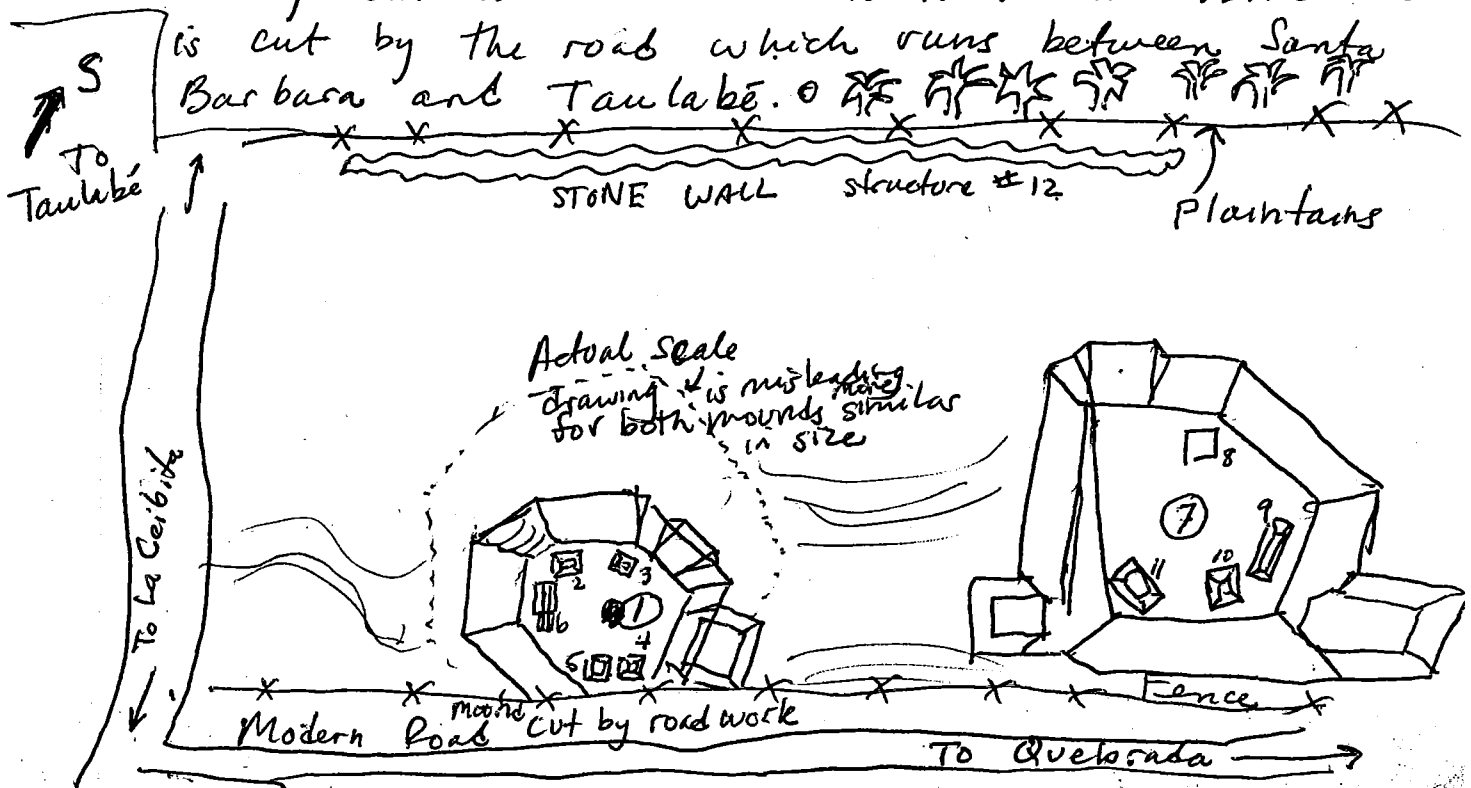 is cut by the road which runs between Santa
Barbara and Taulabé.
S
To
Taulabé
STONE WALL structure # 12
Plaintains
Actual scale
drawing is misleading
for both mounds more similar
in size
8
7
9
10
11
2
3
6
1
4
5
To La Ceibita
Fence
Modern Road mound cut by road work
To Quebrada